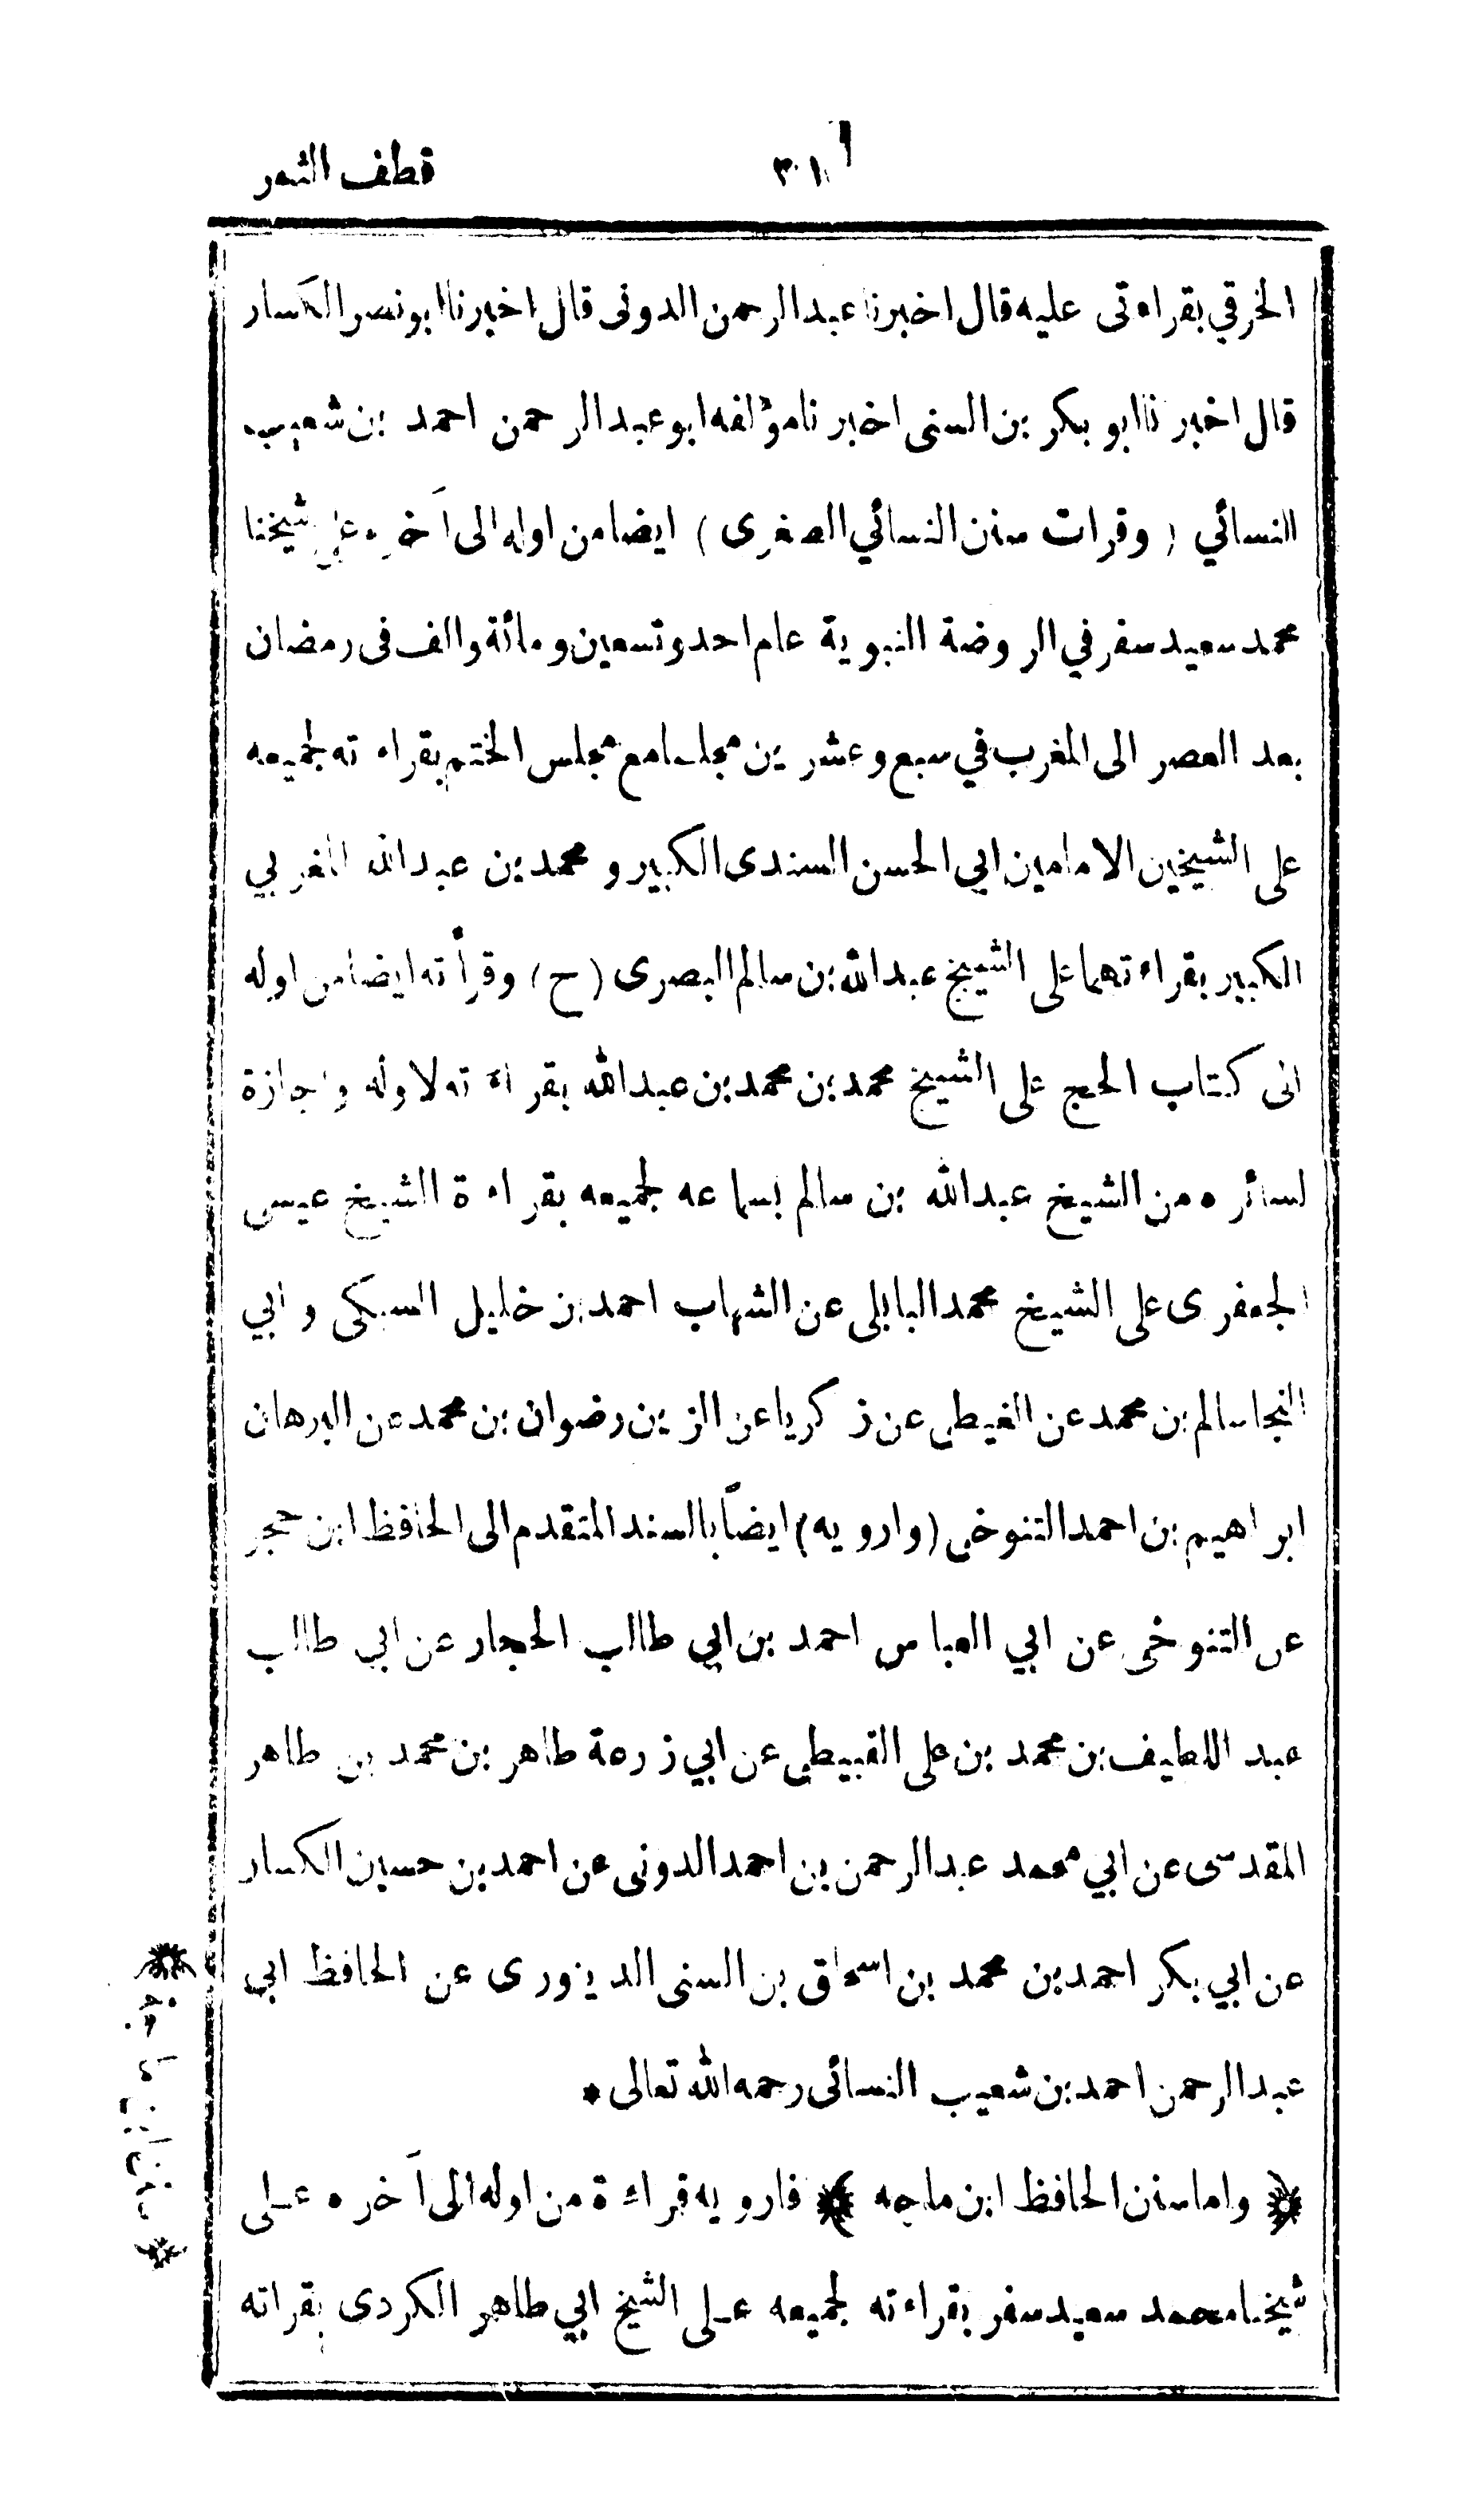 قطف الثمر
الخرقي بقراءتى عليه قال اخبرنا عبد الرحمن الدونى قال اخبرنا ابو نصر الكسار
قال اخبرنا ابو بكر بن السنى اخبرنا مؤلفه ابو عبد الرحمن احمد بن شعيب
النسائي (وقرات سنن النسائي الصغرى) ايضا من اوله الى آخره على شيخنا
محمد سعيد سفر في الروضة النبوية عام احد وتسعين ومائة والف فى رمضان
بعد العصر الى المغرب في سبع وعشرين مجلسا مع مجلس الختم بقراءته لجميعه
على الشيخين الامامين ابي الحسن السندى الكبير و محمد بن عبد الله المغربي
الكبير بقراءتهما على الشيخ عبد الله بن سالم البصرى (ح) وقرأته ايضا من اوله
الى كتاب الحج على الشيخ محمد بن محمد بن عبد الله بقراءته لاوله واجازة
لسائره من الشيخ عبد الله بن سالم بسماعه لجميعه بقراءة الشيخ عيسى
الجعفرى على الشيخ محمد البابلى عن الشهاب احمد بن خليل السبكى وابي
النجا سالم بن محمد عن الغيطى عن زكريا عن الزين رضوان بن محمد عن البرهان
ابراهيم بن احمد التنوخى (وارويه) ايضاً بالسند المتقدم الى الحافظ ابن حجر
عن التنوخى عن ابي العباس احمد بن ابي طالب الحجار عن ابي طالب
عبد اللطيف بن محمد بن على القبيطى عن ابي زرعة طاهر بن محمد بن طاهر
المقدسى عن ابي محمد عبد الرحمن بن احمد الدونى عن احمد بن حسين الكسار
عن ابي بكر احمد بن محمد بن اسحاق بن السنى الدينورى عن الحافظ ابي
عبد الرحمن احمد بن شعيب النسائى رحمه الله تعالى *
﴿ واما سنن الحافظ ابن ماجه ﴾ فارويه قراءة من اوله الى آخره على
شيخنا محمد سعيد سفر بقراءته لجميعه على الشيخ ابي طاهر الكردى بقراته